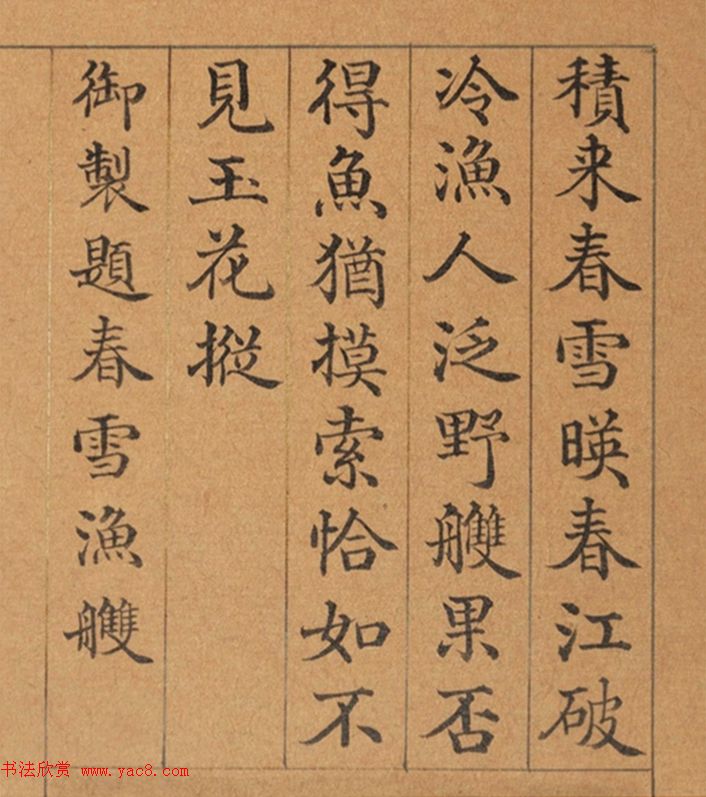 積来春雪暎春江破
冷漁人泛野艭果否
得魚猶摸索恰如不
見玉花摐
御製題春雪漁艭
书法欣赏 www.yac8.com